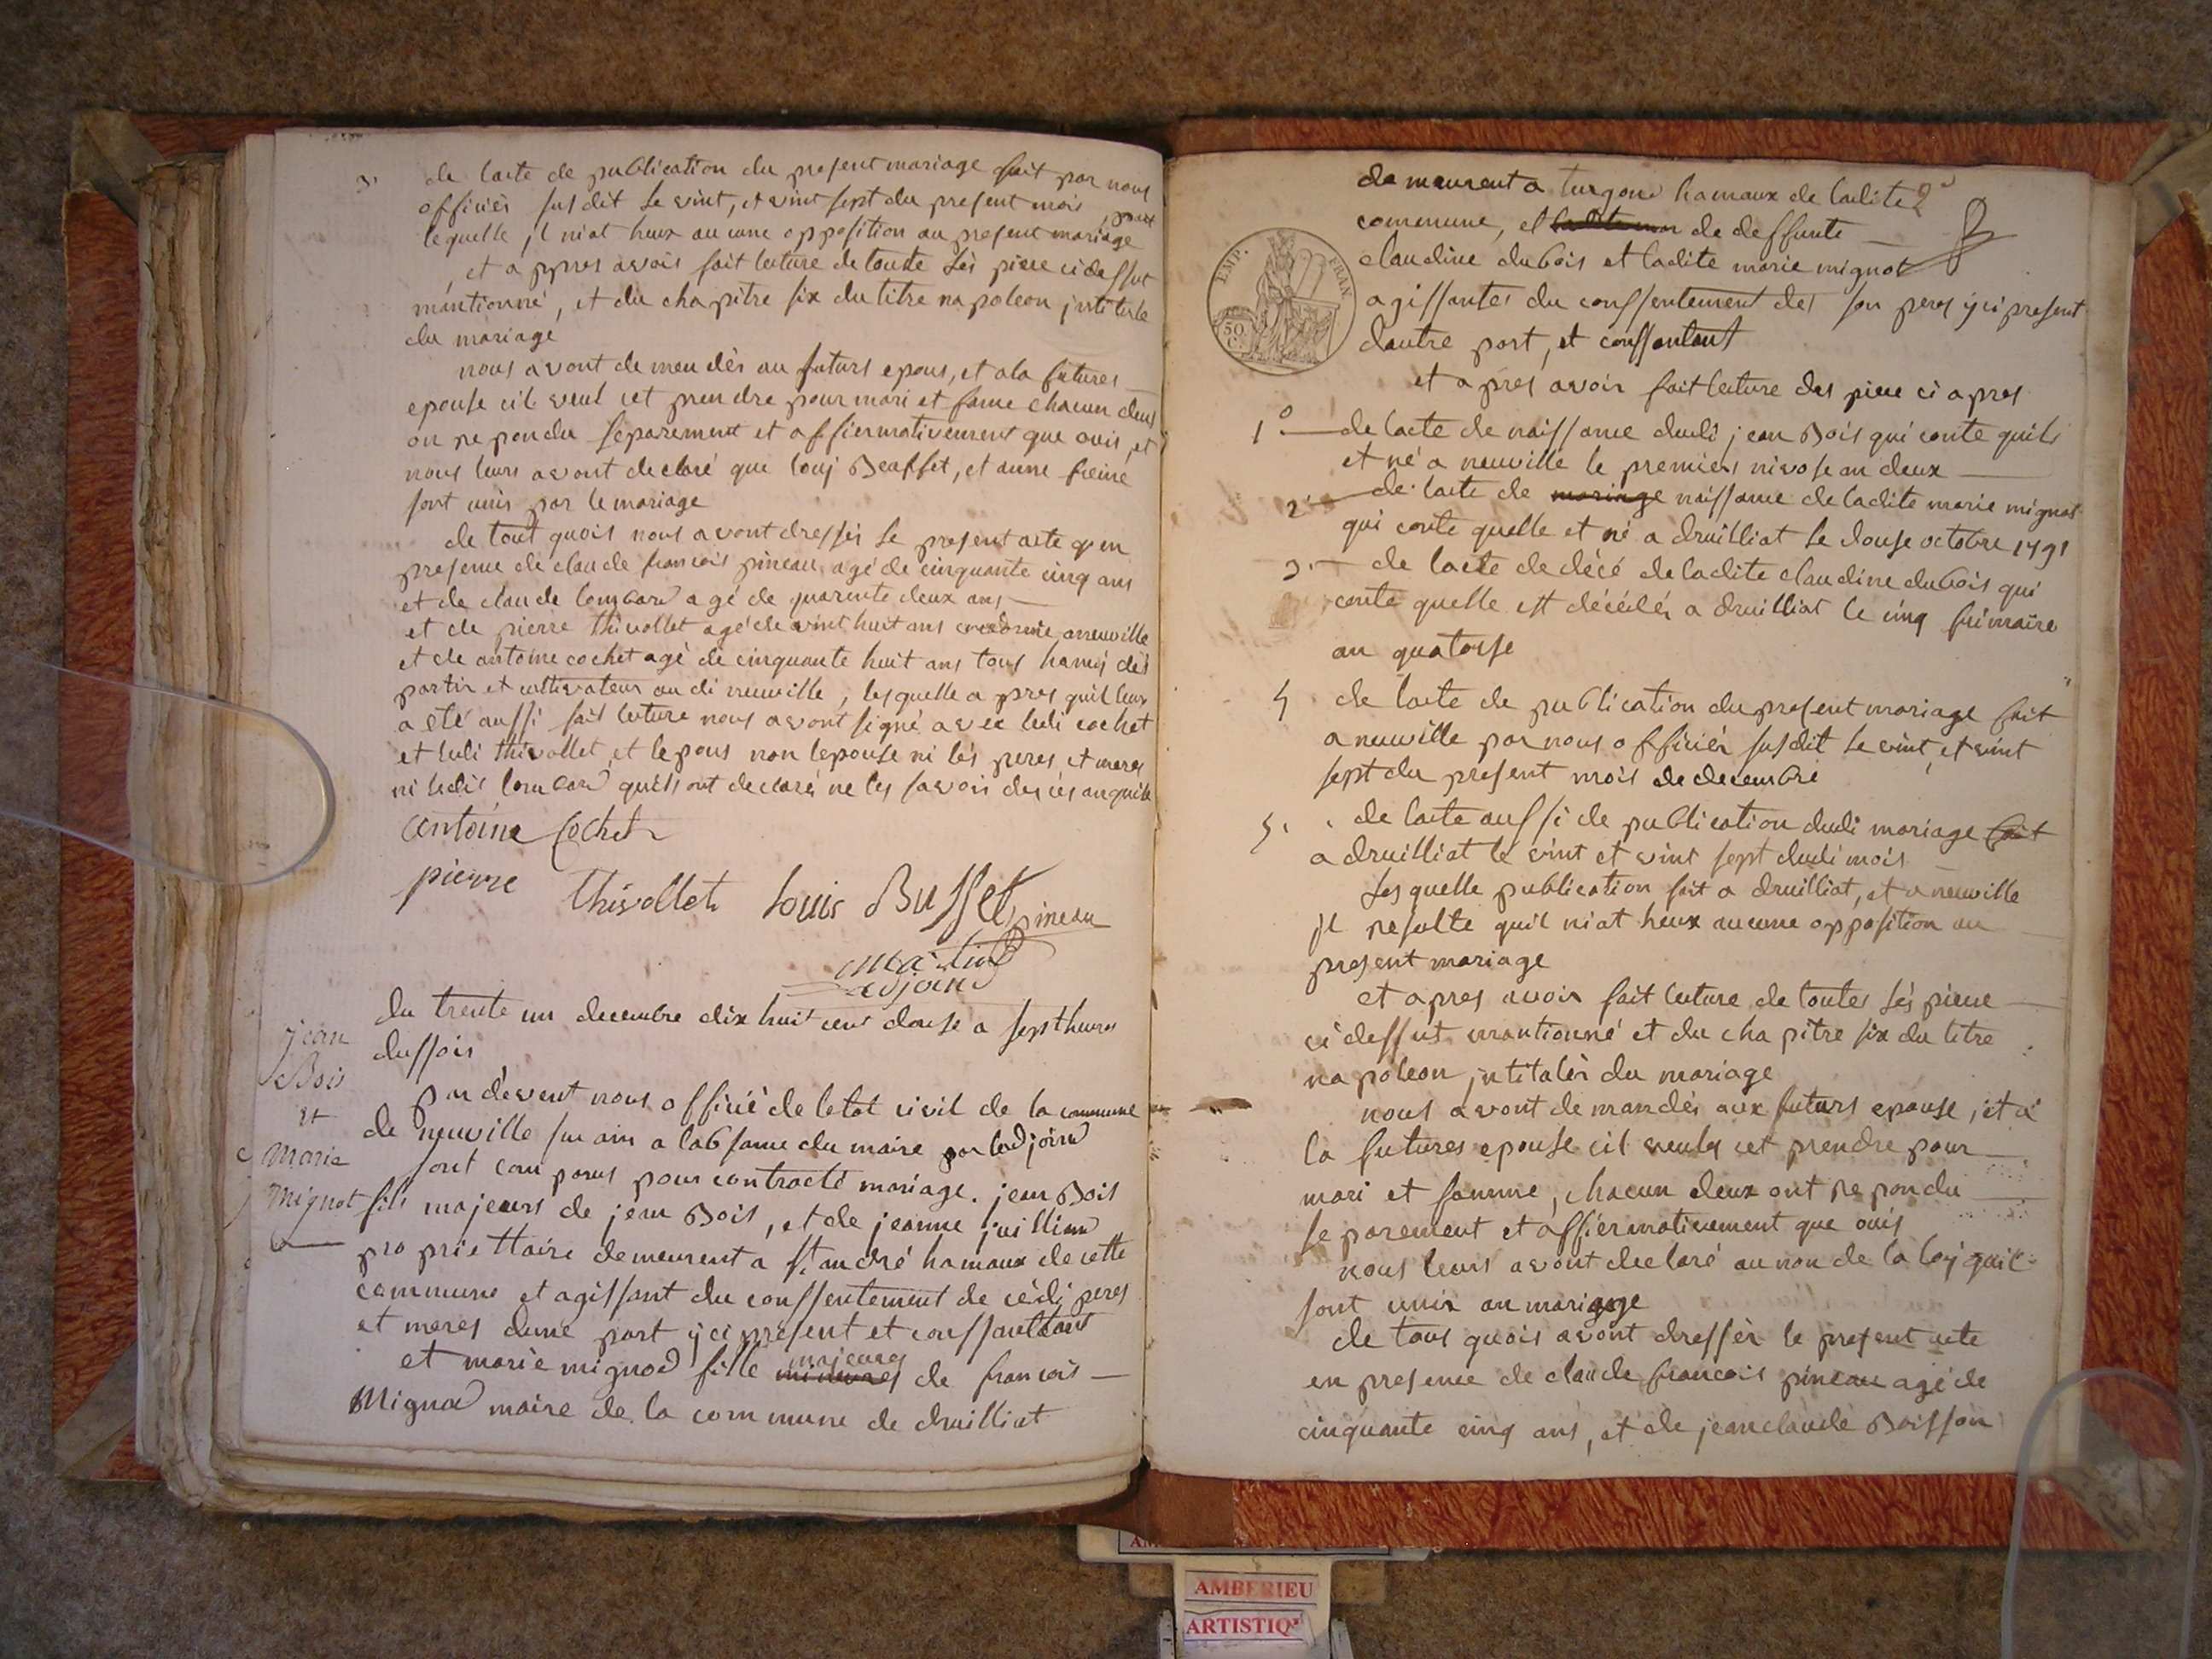 3. de lacte de publication du present mariage fait par nous
officièr susdit le vint, et vint sept du present mois, pour
lequelle, il niat heux aucune opposition au present mariage
et appres avois fait lecture de toute Les piece ci dessut
mantionné, et du chapitre six du titre napoleon intitule
du mariage
nous avont demendès au futurs epous, et ala futures
epouse cil veul cet prendre pour mari et fame chacun deus
on repondu separement et affiermativement que ouis, et
nous leurs avont declaré que louj Beasset, et anne
sont unis par le mariage
de tout quois nous avont dressès le present acte
presence de claude francois pineau agé de cinquante cinq ans
et de claude lombard agé de quarente deux ans
et de pierre thivollet agé de vint huit ans anneuville
et de antoine cochet agé de cinquante huit ans tous
partis et cultivateur au di neuville, lesquelle apres quil leur
a été aussi fait lecture nous avont signé avec ledi cochet
et ledi thivollet, et lepous non lepouse ni lès peres et meres
ni ledit lombard quils ont declaré ne les savois
antoine Cochet
pierre thivollet Louis Busset pineau
martin
adjoind
du trente un decembre dix huit cent douse a sept heures
dussois
jean
Bois
et
Marie
Mignot
par dèvent nous officiè de letat civil de la commune
de neuville sur ain a labsance du maire par ladjoind
sont comparus pour contracté mariage. jean Bois
fils majeurs de jean Bois, et de jeanne juilliard
propriettaire demeurent a st andré hamaux de cette
commune et agissant du conssentement de cédi peres
et meres dune part ici present et conssantant
et marie mignod fille mineures majeures de francois
Mignod maire de la commune de druilliat
demeurent a turgon hamaux de ladite
commune, et de deffunte
claudine dubois et ladite marie mignot
agissantes du conssentement des son peres yci present
dautre port, et conssantant
EMP. FRAN
50 C.
et apres avoir fait lecture des piece ci apres
1° de lacte de naissance dudi jean Bois qui conte quils
et né a neuville le premiers nivose an deux
2° de lacte de mariage naissance de ladite marie mignot
qui conte quelle et né a druilliat le douse octobre 1791
3. de lacte de décé de ladite claudine dubois qui
conte quelle est décédés a druilliat le cinq frimaire
an quatorse
4 de lacte de publication du present mariage fait
a neuville par nous officièr susdit le vint, et vint
sept du present mois de decembre
5. de lacte aussi de publication dudi mariage fait
a druilliat le vint et vint sept dudi mois
Les quelle publication fait a druilliat, et a neuville
jl resulte quil niat heux aucune opposition au
present mariage
et apres avoir fait lecture de toutes les piece
ci dessut mantionné et du chapitre six du titre
napoleon, intitulés du mariage
nous avont demandés aux futurs epouse, et a
la futures epouse cil veules cet prendre pour
mari et famme, chacun deux ont repondu
separement et affiermativement que ouis
nous leurs avont declaré au non de la loy quil
sont unis an mariage
de tous quois avont dresser le present acte
en presence de claude francois pineau agé de
cinquante cinq ans, et de jean claude Boisson
AMBERIEU
ARTISTIQ